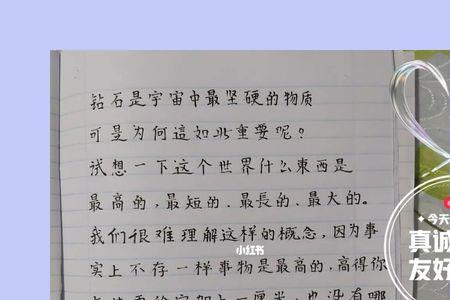 钻石是宇宙中最坚硬的物质
可是为何這如此重要呢？
试想一下这个世界什么東西是
最高的，最短的、最長的、最大的。
我们很难理解这样的概念，因为事
实上不存一样事物是最高的，高得你
小红书
今天
真诚
友好